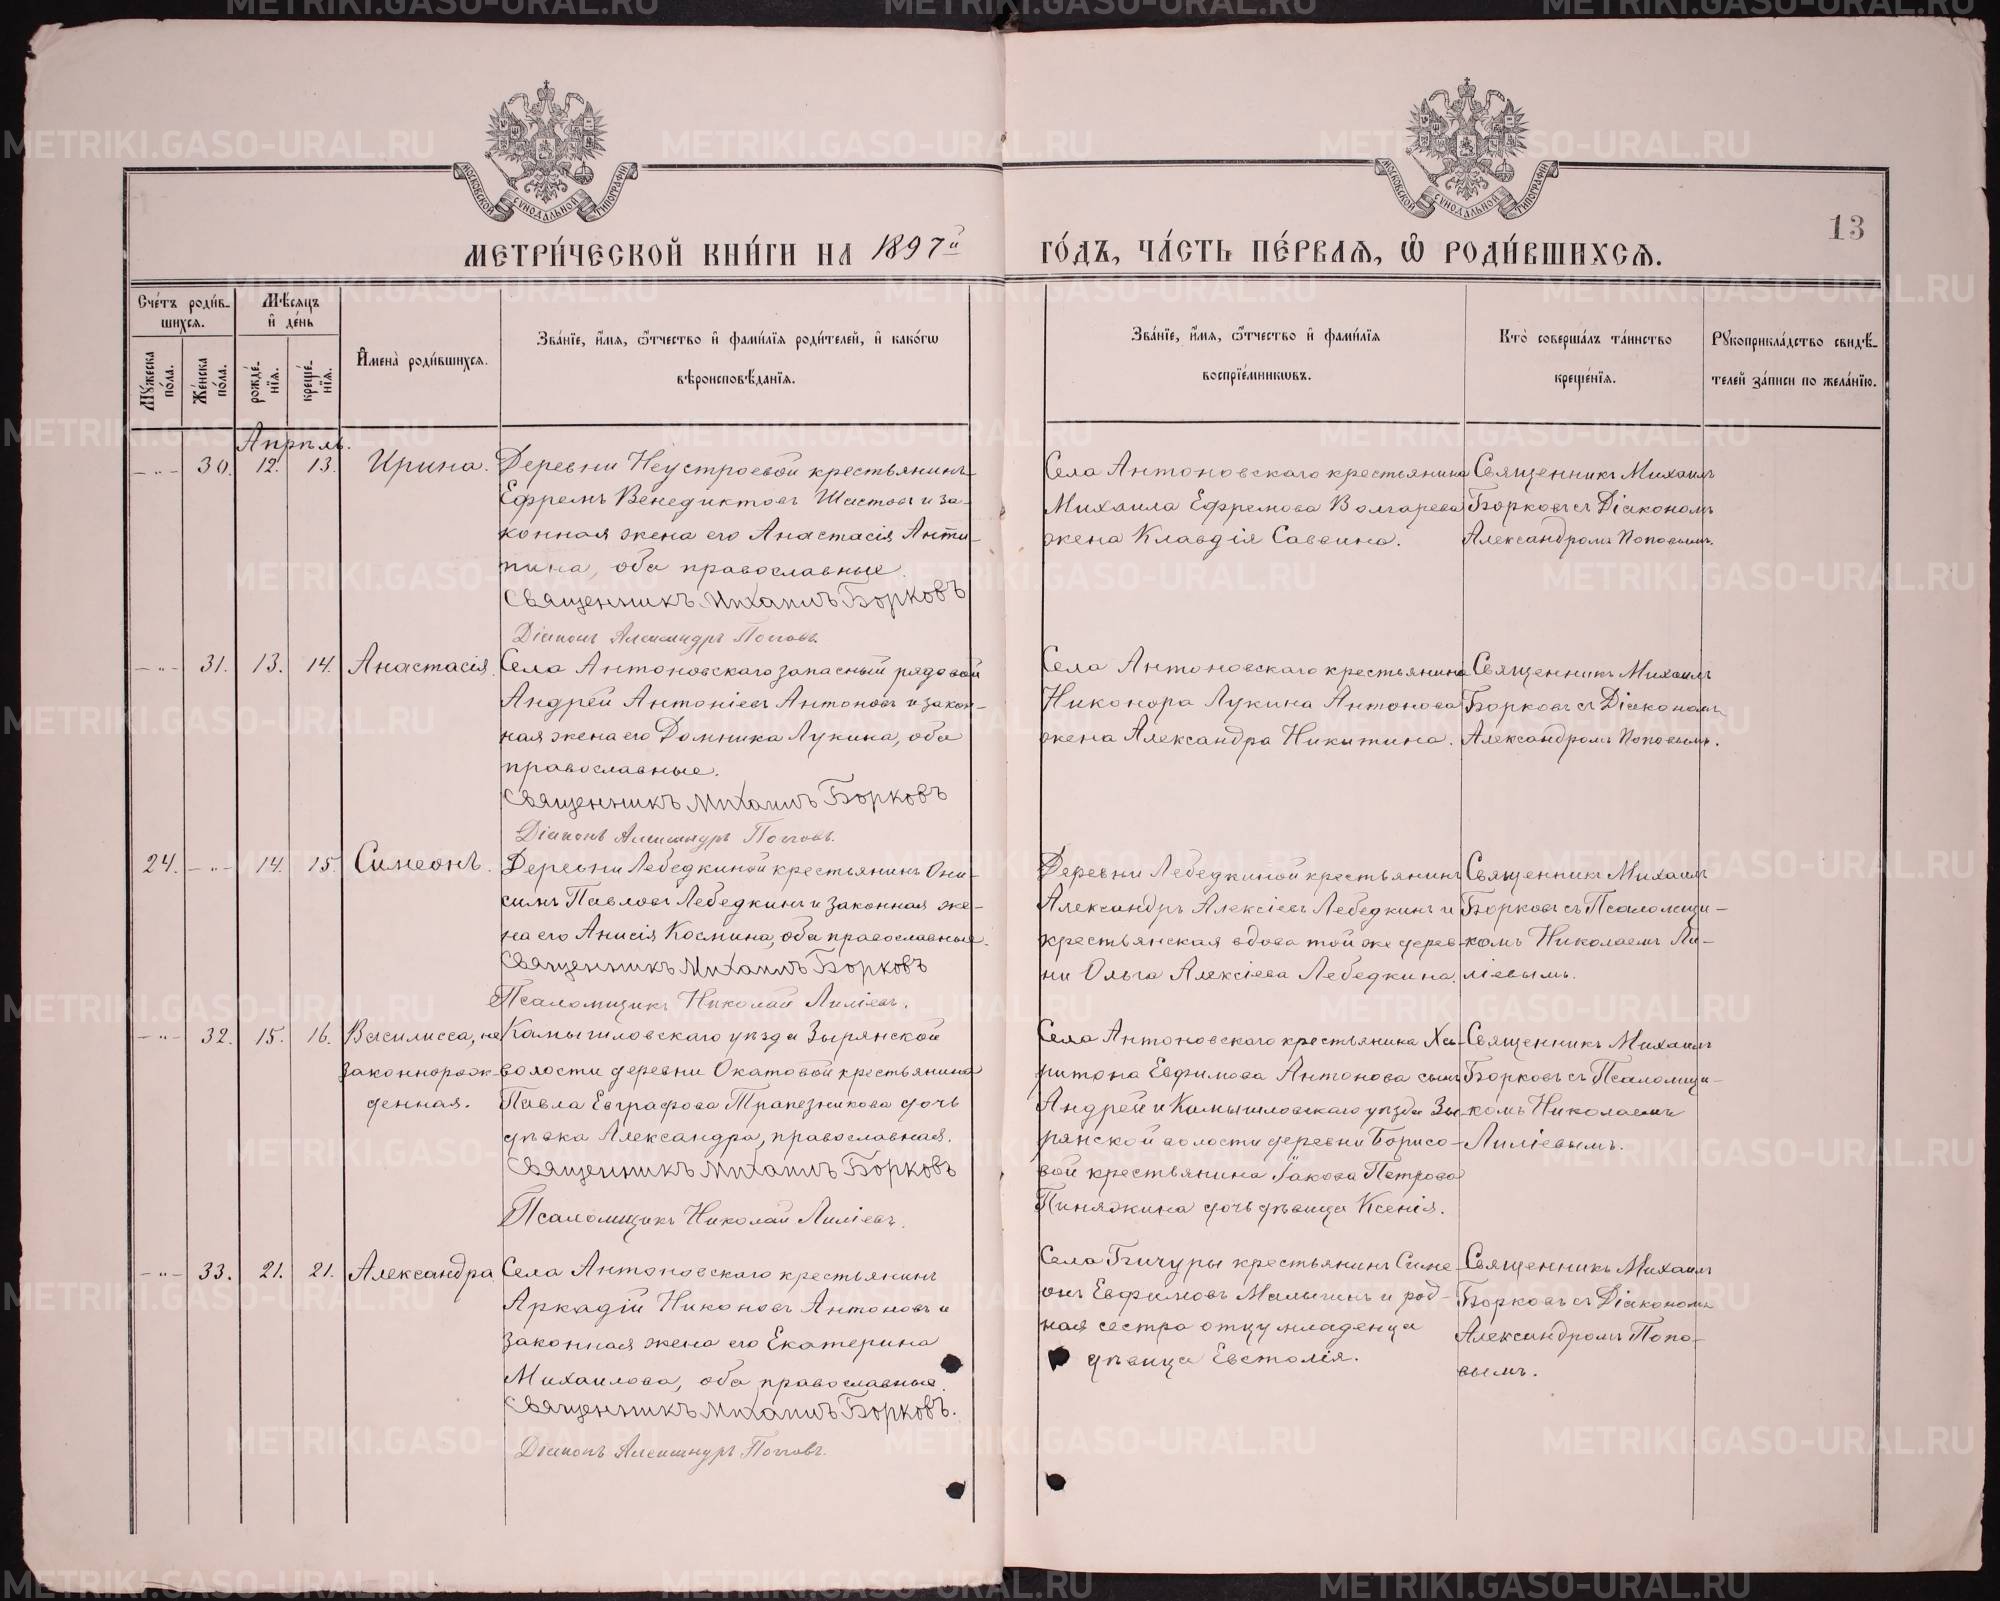 МОСКОВСКОЙ СУНОДАЛЬНОЙ ТИПОГРАФІИ
МОСКОВСКОЙ СУНОДАЛЬНОЙ ТИПОГРАФІИ
13
МЕТРИ́ЧЕСКОЙ КНИ́ГИ НА 1897й ГО́ДЪ, ЧА́СТЬ ПЕ́РВАѦ, Ѡ РОДИ́ВШИХСѦ.
Сче́тъ роди́в-
шихсѧ.
Мѣ́сѧцъ
и҆ де́нь
Мꙋ́жеска
по́ла.
Же́нска
по́ла.
рожде́-
нїѧ.
креще́-
нїѧ.
И҆мена̀ роди́вшихсѧ.
Зва́нїе, и҆́мѧ, ѻ҆́тчество и҆ фами́лїѧ роди́телей, и҆ како́гѡ
вѣроисповѣ́данїѧ.
Зва́нїе, и҆́мѧ, ѻ҆́тчество и҆ фами́лїѧ
воспрїе́мникѡвъ.
Кто̀ соверша́лъ та́инство
креще́нїѧ.
Рꙋкоприкла́дство свидѣ́-
телей за́писи по жела́нїю.
Апрѣль.
— „ — 30. 12. 13. Ирина.
Деревни Неустроевой крестьянинъ
Ефремъ Венедиктовъ Шастовъ и за-
конная жена его Анастасія Анти-
пина, оба православные.
Священникъ Михаилъ Борковъ
Діаконъ Александръ Поповъ.
Села Антоновскаго крестьянина
Михаила Ефремова Волгарева
жена Клавдія Саввина.
Священникъ Михаилъ
Борковъ съ Діакономъ
Александромъ Поповымъ.
— „ — 31. 13. 14. Анастасія.
Села Антоновскаго запасный рядовой
Андрей Антоніевъ Антоновъ и закон-
ная жена его Домника Лукина, оба
православные.
Священникъ Михаилъ Борковъ
Діаконъ Александръ Поповъ.
Села Антоновскаго крестьянина
Никонора Лукина Антонова
жена Александра Никитина.
Священникъ Михаилъ
Борковъ съ Діакономъ
Александромъ Поповымъ.
24. — „ — 14. 15. Симеонъ.
Деревни Лебедкиной крестьянинъ Они-
симъ Павловъ Лебедкинъ и законная же-
на его Анисія Космина, оба православные.
Священникъ Михаилъ Борковъ
Псаломщикъ Николай Лиліевъ.
Деревни Лебедкиной крестьянинъ
Александръ Алексіевъ Лебедкинъ и
крестьянская вдова той же дерев-
ни Ольга Алексіева Лебедкина.
Священникъ Михаилъ
Борковъ съ Псаломщи-
комъ Николаемъ Ли-
ліевымъ.
— „ — 32. 15. 16. Василисса, не
законнорож-
денная.
Камышловскаго уѣзда Зырянской
волости деревни Окатовой крестьянина
Павла Евграфова Трапезникова дочь
дѣвка Александра, православная.
Священникъ Михаилъ Борковъ
Псаломщикъ Николай Лиліевъ.
Села Антоновскаго крестьянина Ха-
ритона Евфимова Антонова сынъ
Андрей и Камышловскаго уѣзда Зы-
рянской волости деревни Борисо-
вой крестьянина Іакова Петрова
Пиняжина дочь дѣвица Ксенія.
Священникъ Михаилъ
Борковъ съ Псаломщи-
комъ Николаемъ
Лиліевымъ.
— „ — 33. 21. 21. Александра
Села Антоновскаго крестьянинъ
Аркадій Никоновъ Антоновъ и
законная жена его Екатерина
Михаилова, оба православные.
Священникъ Михаилъ Борковъ.
Діаконъ Александръ Поповъ.
Села Бичуры крестьянинъ Симе-
онъ Евфимовъ Малыгинъ и род-
ная сестра отцу младенца
дѣвица Евстолія.
Священникъ Михаилъ
Борковъ съ Діакономъ
Александромъ Попо-
вымъ.
METRIKI.GASO-URAL.RU